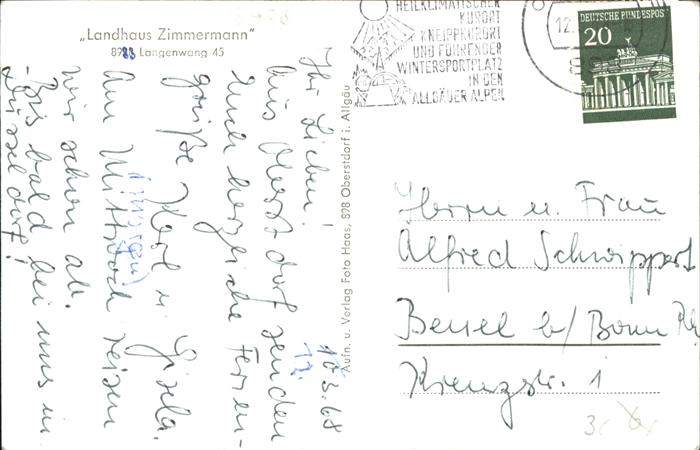 „Landhaus Zimmermann"
Langenwang 45
HEILKLIMATISCHER
KURORT
KNEIPPKURORT
UND FÜHRENDER
WINTERSPORTPLATZ
IN DEN
ALLGÄUER ALPEN
12.
DEUTSCHE BUNDESPOST
20
12.
10.3.68
Ihr Lieben!
Aus Oberstdorf senden
Euch herzliche Ferien-
grüße Horst u. Gisela.
(morgen)
Am Mittwoch reisen
wir schon ab.
Bis bald bei uns in
Düsseldorf!
Aufn. u. Verlag Foto Haas, 898 Oberstdorf i. Allgäu
Herrn u. Frau
Alfred Schwippert
Beuel b/ Bonn Rh
Kreuzstr. 1